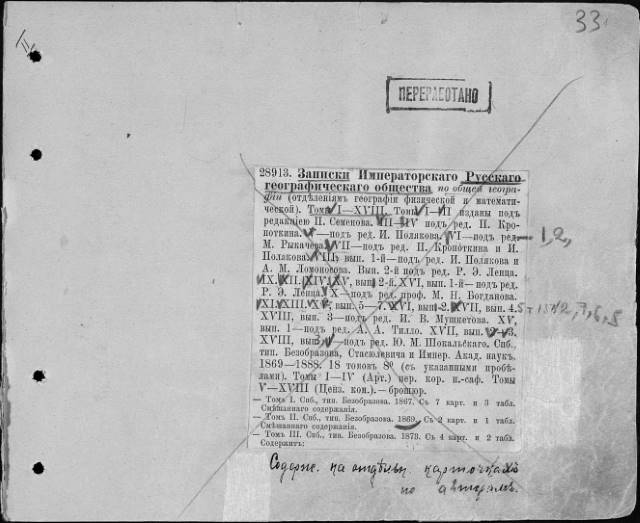 II
33
ПЕРЕРАБОТАНО
28913. Записки Императорскаго Русскаго
географическаго общества по общей геогра-
фіи (отдѣленіямъ географіи физической и математи-
ческой). Томы I—XVIII. Томы I—II изданы подъ
редакціею П. Семенова. III—IV подъ ред. П. Кро-
поткина. V—подъ ред. И. Полякова. VI—подъ ред.
М. Рыкачева. VII—подъ ред. П. Кропоткина и И.
Полякова. VIII, вып. 1-й—подъ ред. И. Полякова и
А. М. Ломоносова. Вып. 2-й подъ ред. Р. Э. Ленца.
IX. XII. XIV. XV, вып. 2-й. XVI, вып. 1-й—подъ ред.
Р. Э. Ленца. X—подъ ред. проф. М. Н. Богданова.
XI. XIII. XV, вып. 5—7. XVI, вып. 2. XVII, вып. 4.
XVIII, вып. 3—подъ ред. И. В. Мушкетова. XV,
вып. 1—подъ ред. А. А. Тилло. XVII, вып. 2—3.
XVIII, вып. —подъ ред. Ю. М. Шокальскаго. Спб.,
тип. Безобразова, Стасюлевича и Импер. Акад. наукъ.
1869—1888. 18 томовъ 8° (съ указанными пробѣ-
лами). Томы I—IV (Арт.) пер. кор. и.-саф. Томы
V—XVIII (Ценз. кон.).—брошюр.
— Томъ I. Спб., тип. Безобразова. 1867. Съ 7 карт. и 3 табл.
Смѣшаннаго содержанія.
— Томъ II. Спб., тип. Безобразова. 1869. Съ 2 карт. и 1 табл.
Смѣшаннаго содержанія.
— Томъ III. Спб., тип. Безобразова. 1873. Съ 4 карт. и 2 табл.
Содержитъ:
1, 2,
Содерж. на отдѣльн. карточкахъ
по авторамъ.